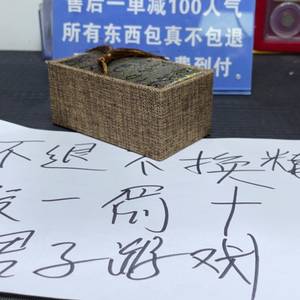 售后一单减100人气
所有东西包真不包退
费到付。
不退不换
假一罚十
君子游戏